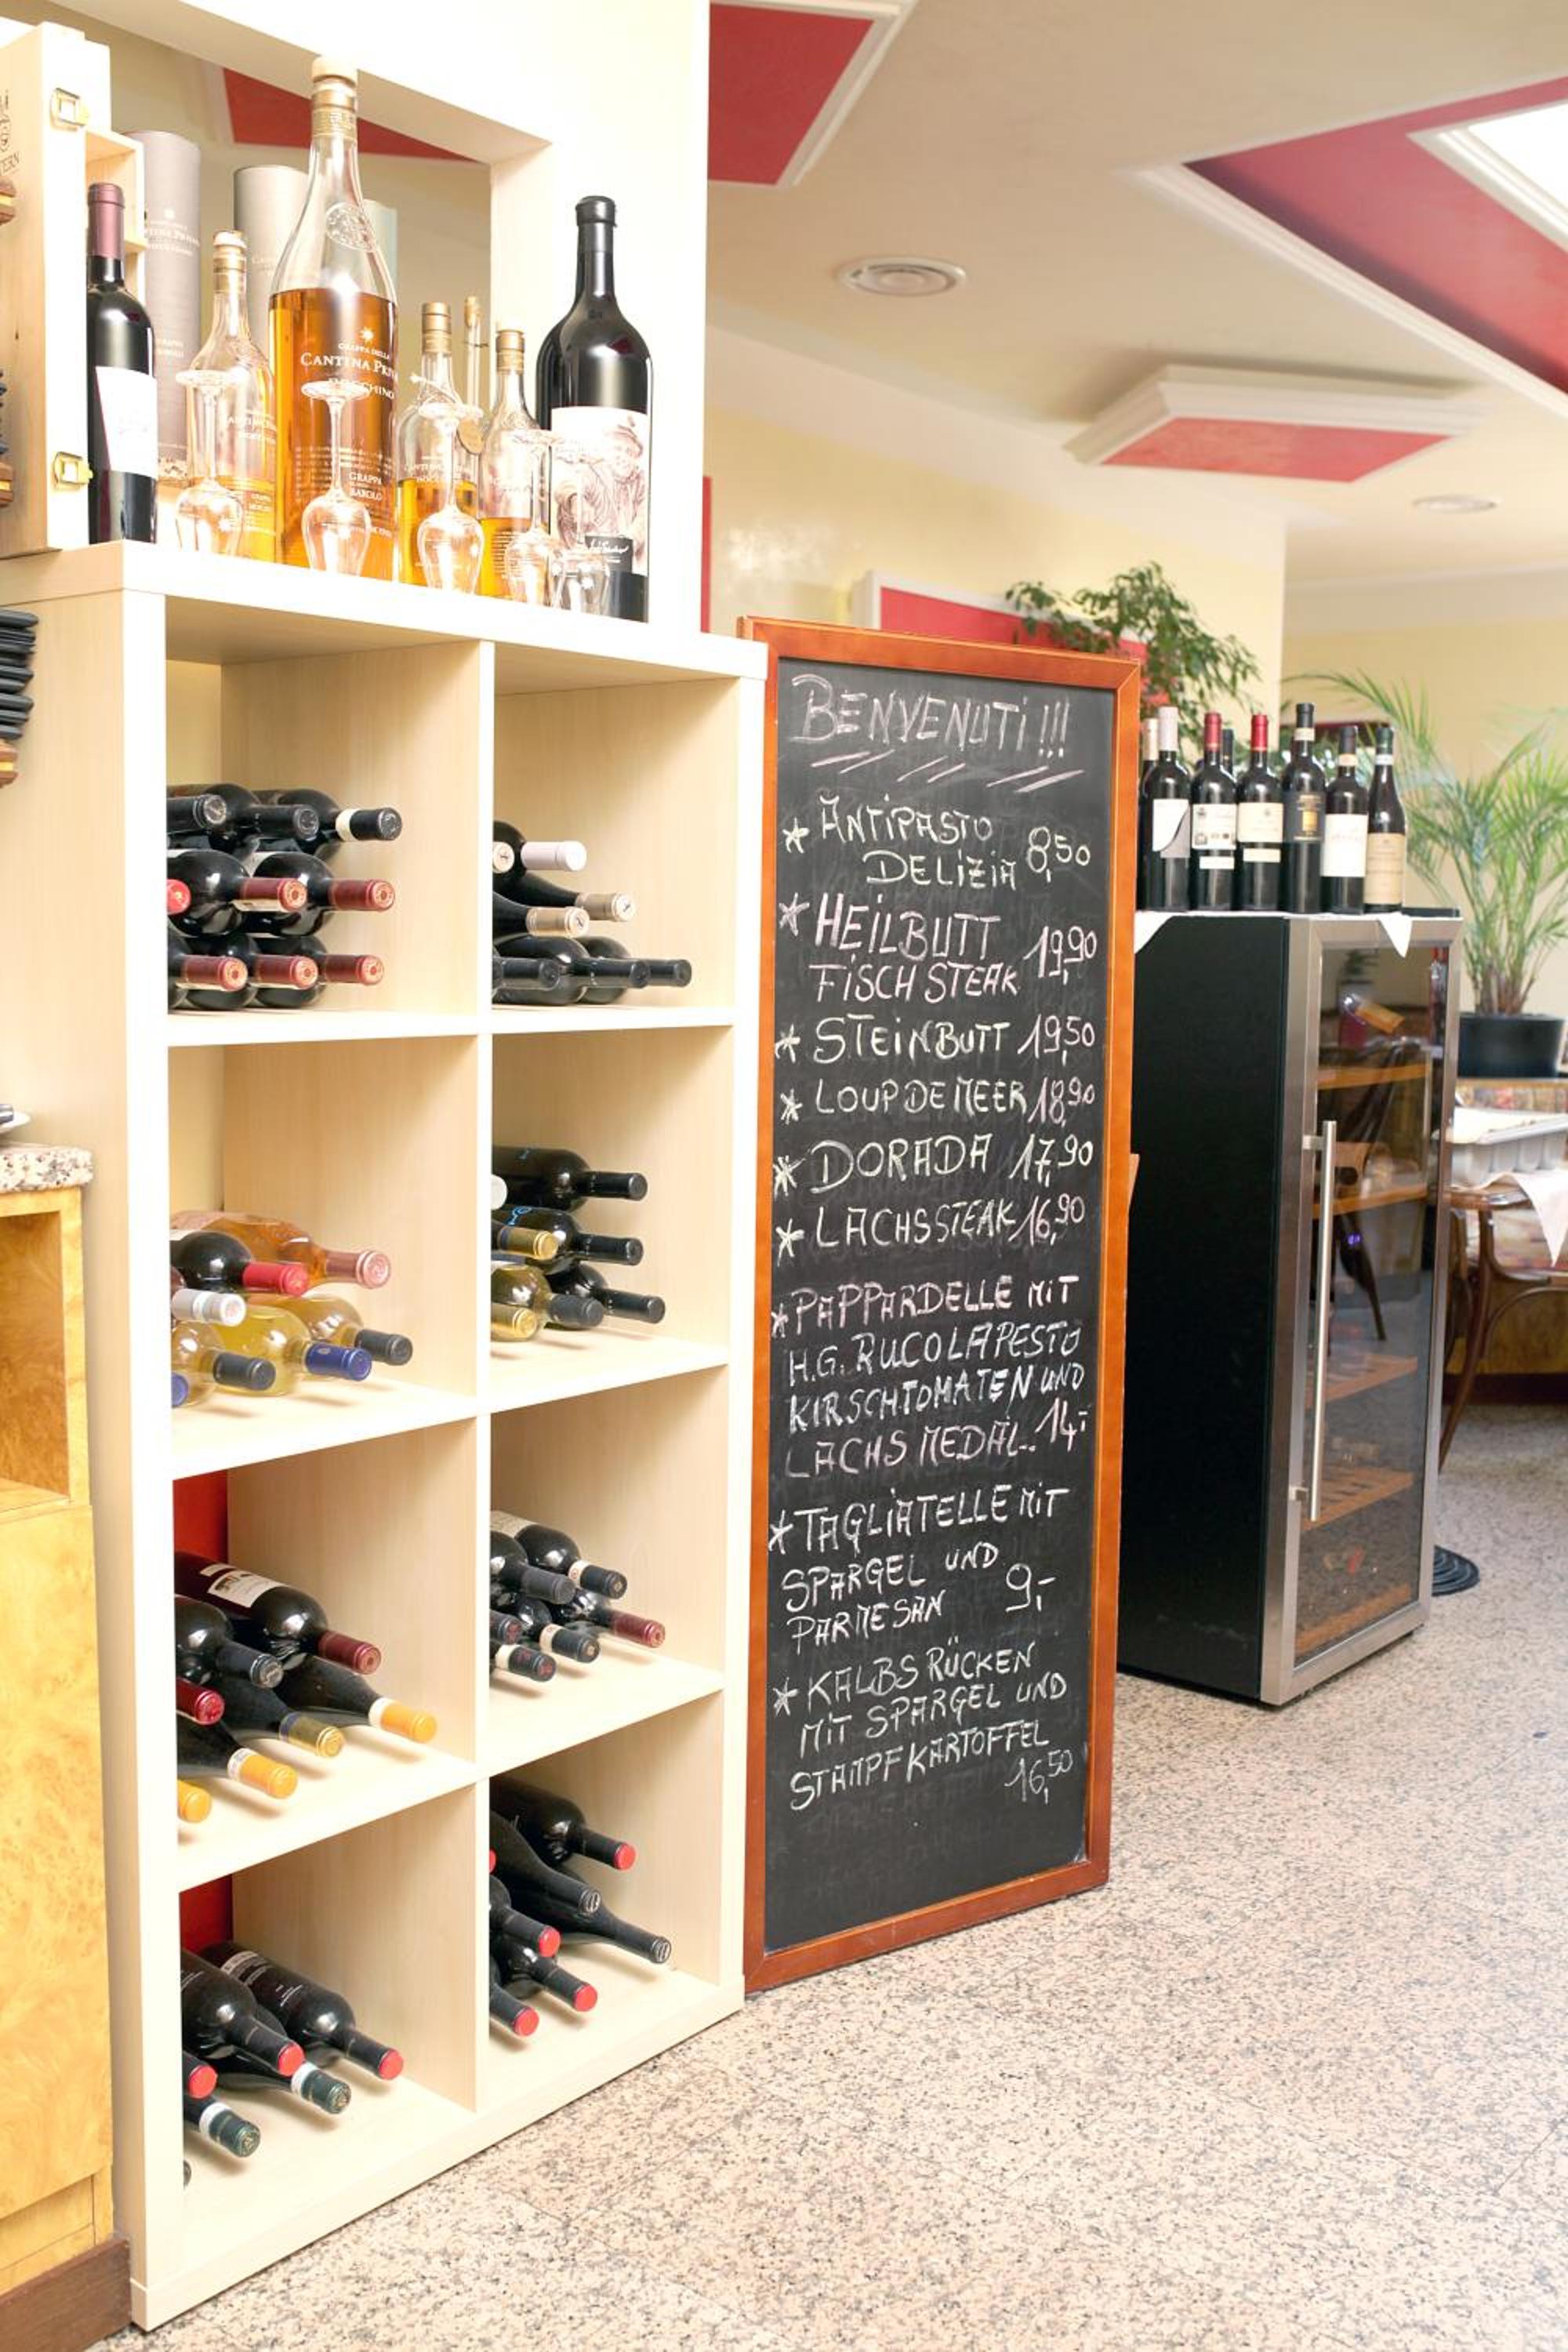 GRAPPA DELLA
CANTINA PRIV
GRAPPA
BAROLO
BENVENUTI!!!
* ANTIPASTO
DELIZIA 8,50
* HEILBUTT
FISCHSTEAK 19,90
* STEINBUTT 19,50
* LOUP DE MEER 18,90
* DORADA 17,90
* LACHSSTEAK 16,90
* PAPPARDELLE MIT
H.G. RUCOLAPESTO
KIRSCHTOMATEN UND
LACHS MEDAL.. 14,-
* TAGLIATELLE MIT
SPARGEL UND
PARMESAN 9,-
* KALBSRÜCKEN
MIT SPARGEL UND
STAMPFKARTOFFEL
16,50